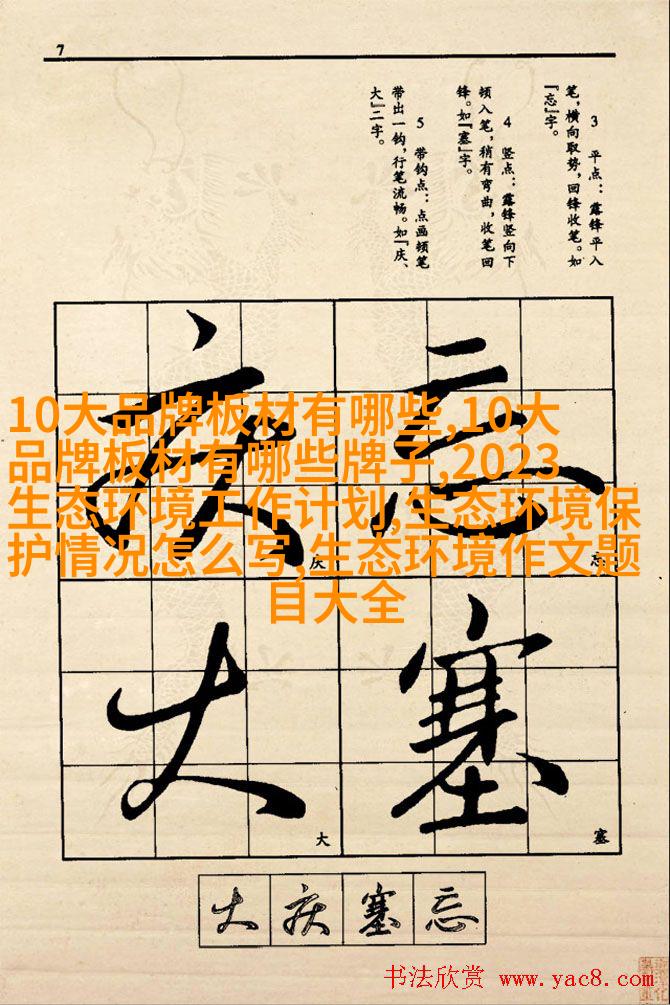 7
3　平点：露锋平入
笔，横向取势，回锋收笔。如
『忘』字。
4　竖点：露锋竖向下
顿入笔，稍有弯曲，收笔回
锋。如『塞』字。
5　带钩点：点画顿笔
带出一钩，行笔流畅。如『庆、
大』二字。
10大品牌板材有哪些,10大
品牌板材有哪些牌子,2023
生态环境工作计划,生态环境保
护情况怎么写,生态环境作文题
目大全
庆 忘
庆 忘
大 塞
大 塞
大 庆 塞 忘
书法欣赏 www.yac8.com